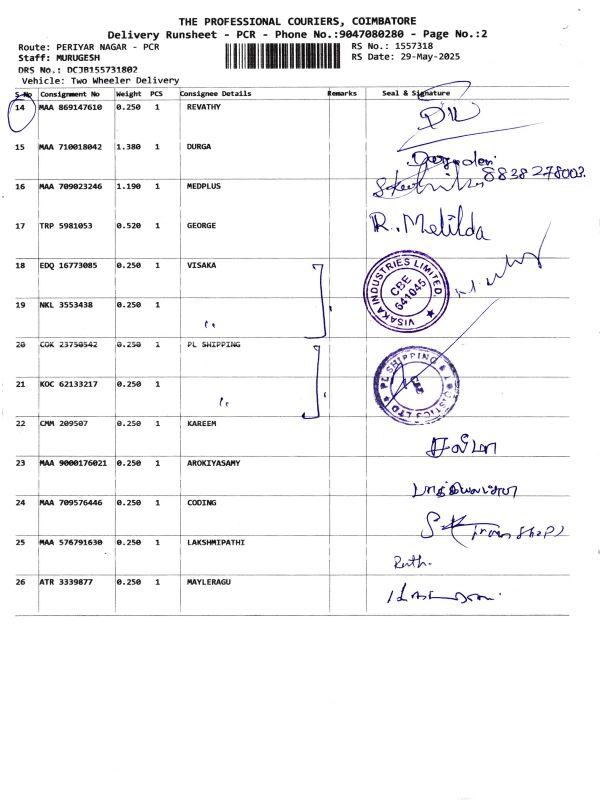 THE PROFESSIONAL COURIERS, COIMBATORE
Delivery Runsheet - PCR - Phone No.:9047080280 - Page No.:2
Route: PERIYAR NAGAR - PCR RS No.: 1557318
Staff: MURUGESH RS Date: 29-May-2025
DRS No.: DCJB155731802
Vehicle: Two Wheeler Delivery
S No Consignment No Weight PCS Consignee Details Remarks Seal & Signature
14 MAA 869147610 0.250 1 REVATHY
15 MAA 710018042 1.380 1 DURGA
8838278003
16 MAA 709023246 1.190 1 MEDPLUS
17 TRP 5981053 0.520 1 GEORGE R. Metilda
18 EDQ 16773085 0.250 1 VISAKA
VISAKA INDUSTRIES LIMITED. CBE 641045
19 NKL 3553438 0.250 1 "
20 COK 23750542 0.250 1 PL SHIPPING
PL SHIPPING & LOGISTICS LTD CBE
21 KOC 62133217 0.250 1 "
22 CMM 209507 0.250 1 KAREEM
23 MAA 9000176021 0.250 1 AROKIYASAMY
24 MAA 709576446 0.250 1 CODING
25 MAA 576791630 0.250 1 LAKSHMIPATHI
26 ATR 3339877 0.250 1 MAYLERAGU